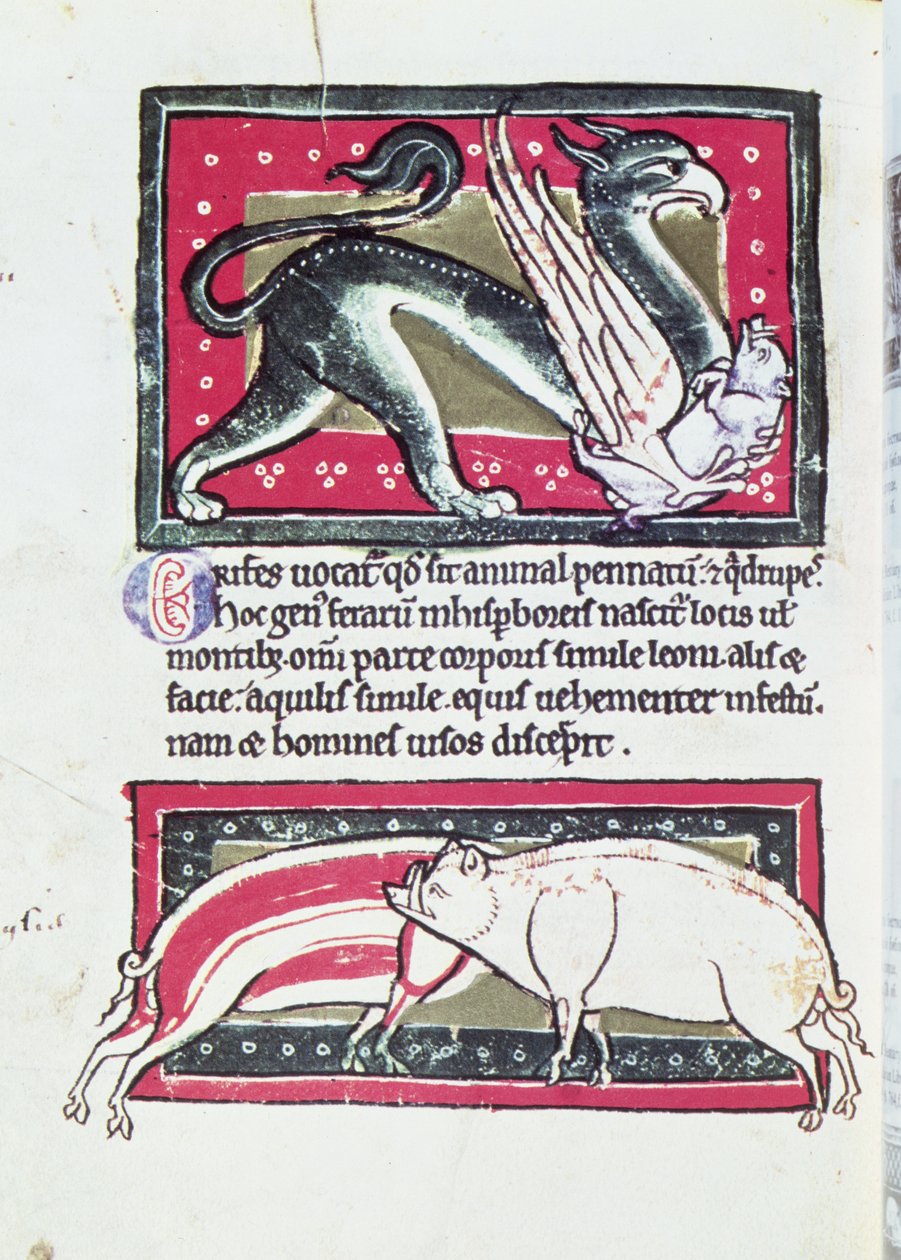 Grifes uocat᷑ qđ sit animal pennatū ⁊ q̇drupes.
hoc genꝰ ferarū in hisꝑboreis nascit᷑ locis uł
montibꝫ. om̄i parte corporis simile leoni. alis &
facie aquilis simile. equis uehementer infestū.
nam & homines uisos discerꝑit.